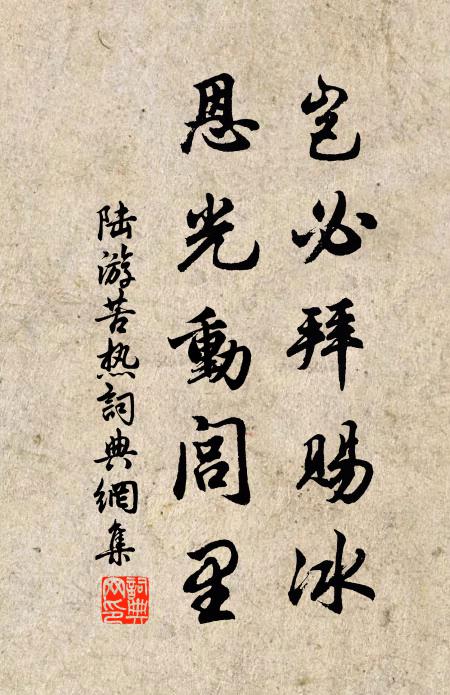 豈必拜賜冰
恩光動閭里
陆游苦热詞典網集
詞典網印